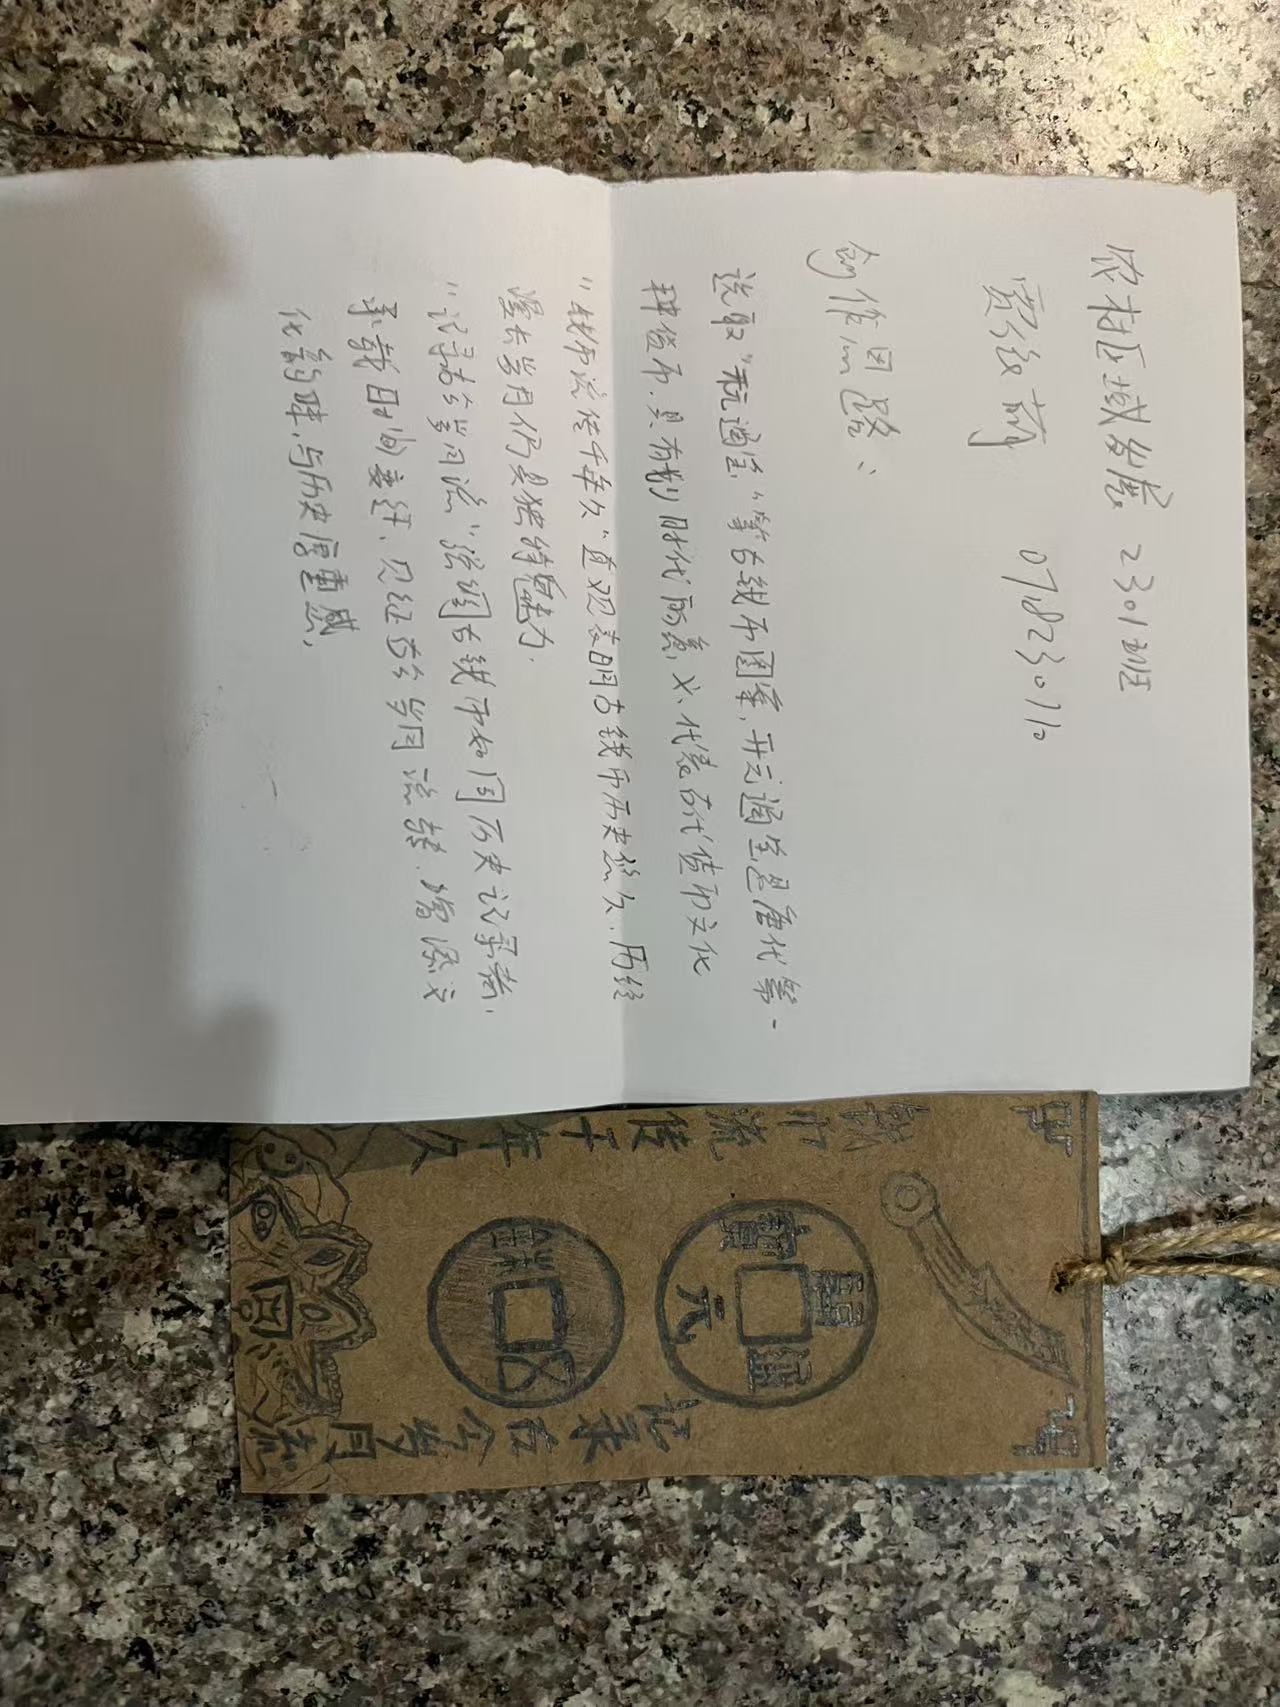 农村区域发展 2301班
贾经萌 078230710
创作思路：
选取“开元通宝”等古钱币图案，开元通宝是唐代第一
种货币，具有划时代的意义，代表古代货币文化
“钱币流传千年久”直观表明古钱币历史悠久，历经
漫长岁月仍具独特魅力.
“记录古今岁月流”强调古钱币如同历史记录者，
承载时间变迁，见证古今岁月流转，增添文
化韵味，与历史厚重感，
钱币流传千年久
開元通寶
五銖
记录古今岁月流